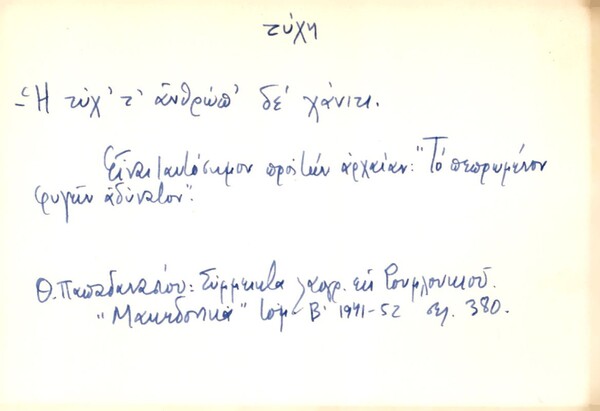 τύχη
- Ἡ τύχ' τ' ἀνθρώπ' δέ χάνιτι.
Εἶναι ταυτόσημον πρός τήν ἀρχαίαν: "Τό πεπρωμένον
φυγεῖν ἀδύνατον".
Θ. Παπαθανασίου: Σύμμεικτα λαογρ. ἐκ Ρουμλουκιοῦ.
"Μακεδονικά" τόμ. Β' 1941-52 σελ. 380.